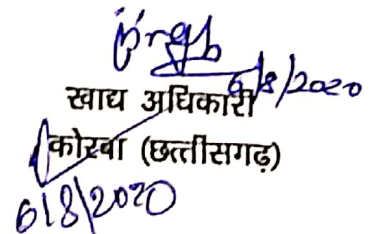 6/8/2020
खाद्य अधिकारी
कोरबा (छत्तीसगढ़)
6/8/2020